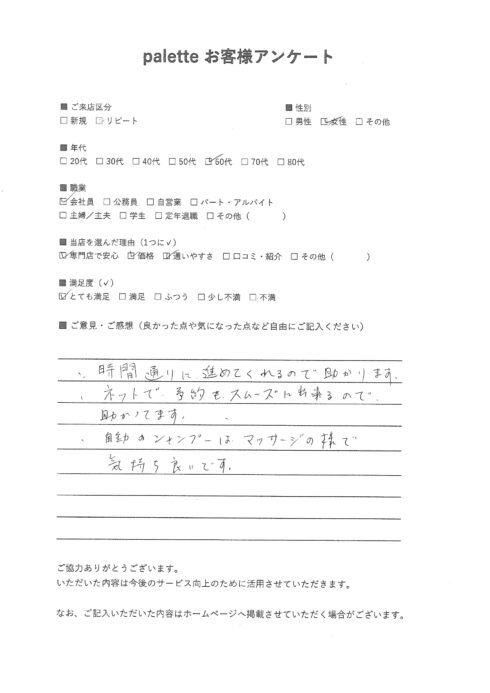 palette お客様アンケート
■ ご来店区分
□ 新規 ☑ リピート
■ 性別
□ 男性 ☑ 女性 □ その他
■ 年代
□ 20代 □ 30代 □ 40代 □ 50代 ☑ 60代 □ 70代 □ 80代
■ 職業
☑ 会社員 □ 公務員 □ 自営業 □ パート・アルバイト
□ 主婦／主夫 □ 学生 □ 定年退職 □ その他（　　　）
■ 当店を選んだ理由（1つに✓）
☑ 専門店で安心 ☑ 価格 ☑ 通いやすさ □ 口コミ・紹介 □ その他（　　　）
■ 満足度（✓）
☑ とても満足 □ 満足 □ ふつう □ 少し不満 □ 不満
■ ご意見・ご感想（良かった点や気になった点など自由にご記入ください）
、時間通りに進めてくれるので助かります。
、ネットで予約もスムーズに出来るので
助かってます。
、自動のシャンプーはマッサージの様で
気持ち良いです。
ご協力ありがとうございます。
いただいた内容は今後のサービス向上のために活用させていただきます。
なお、ご記入いただいた内容はホームページへ掲載させていただく場合がございます。